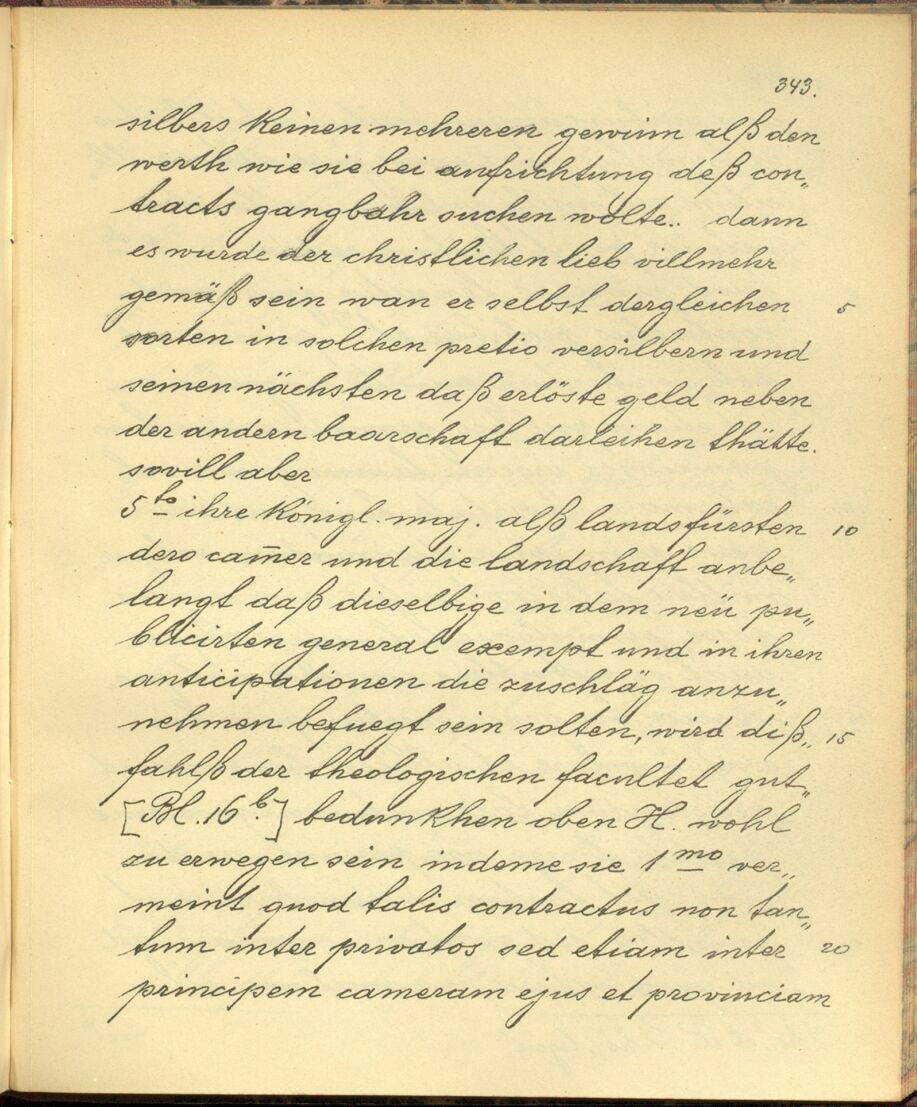 343.
silbers keinen mehreren gewinn alß den
werth wie sie bei aufrichtung deß con„
tracts gangbahr suchen wolte.. dann
es wurde der christlichen lieb villmehr
gemäß sein wan er selbst dergleichen 5
sorten in solchen pretio versilbern und
seinen nächsten daß erlöste geld neben
der andern baarschaft darleihen thätte.
sovill aber
5to ihre königl. maj. alß landsfürsten 10
dero cam̅er und die landschaft anbe„
langt daß dieselbige in dem neü pu„
blicirten general exempt und in ihren
anticipationen die zuschläg anzu„
nehmen befuegt sein solten, wird diß„ 15
fahlß der theologischen facultet gut„
[Bl. 16b.] bedunkhen oben H. wohl
zu erwegen sein indeme sie 1mo ver„
meint quod talis contractus non tan„
tum inter privatos sed etiam inter 20
principem cameram ejus et provinciam